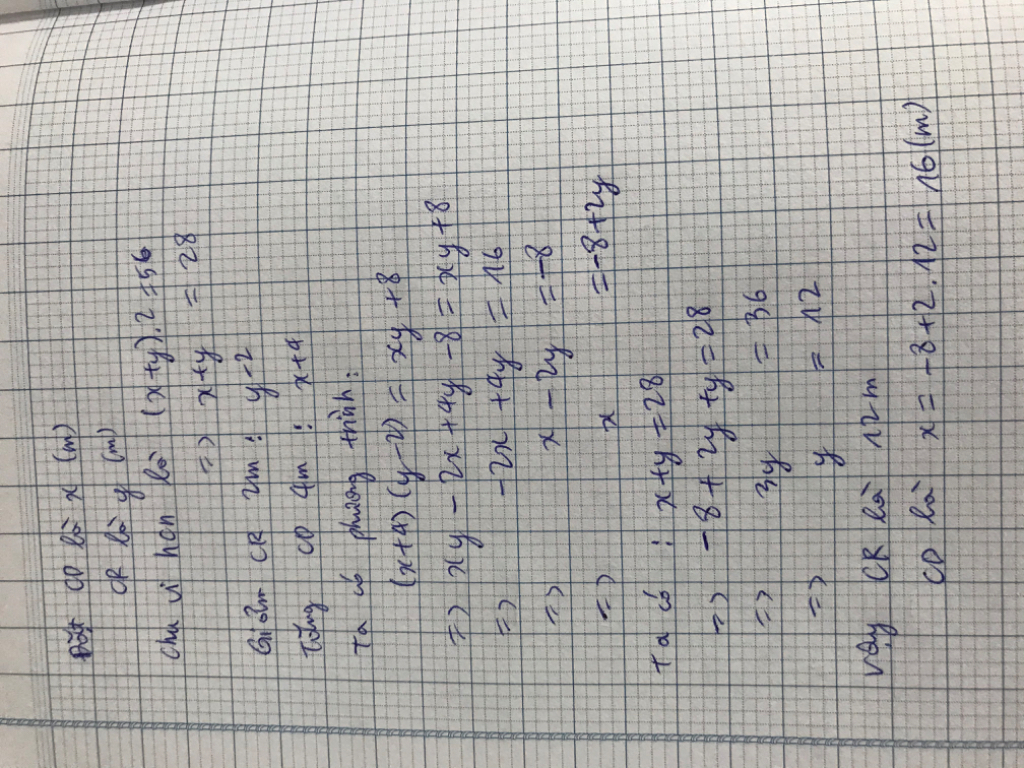 Đặt CD là x (m)
CR là y (m)
Chu vi hcn là (x+y).2=56
=> x+y = 28
Giảm CR 2m : y-2
Tăng CD 4m : x+4
Ta có phương trình:
(x+4)(y-2) = xy +8
=> xy - 2x +4y -8 = xy +8
=> -2x +4y = 16
=> x - 2y = -8
=> x = -8+2y
Ta có : x+y=28
=> -8+2y+y=28
=> 3y = 36
=> y = 12
Vậy CR là 12m
CD là x = -8+2.12 = 16(m)